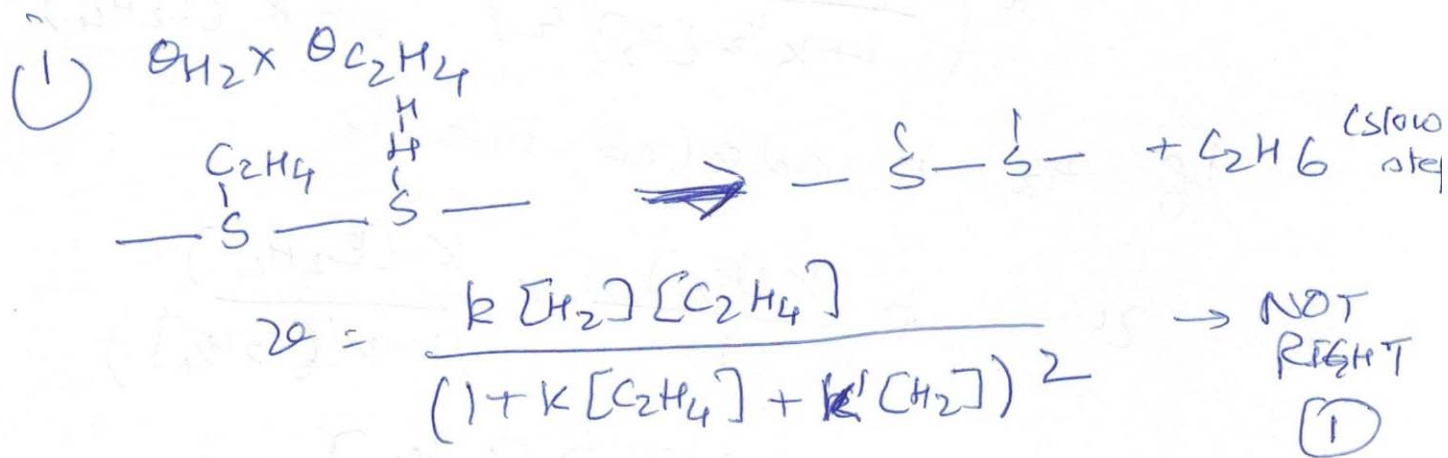 (1) θH2 x θC2H4
H
C2H4 H
— S — S — ⟹ — S — S — + C2H6 (slow step
v = k [H2] [C2H4] / (1 + K [C2H4] + K' [H2])^2 → NOT RIGHT
(1)